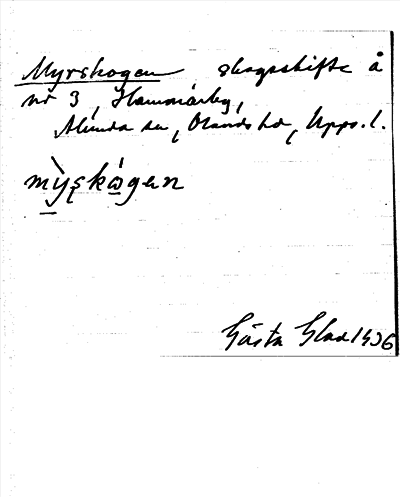 Myrskogen skogsskifte å
nr 3, Hammarby,
Alunda sn, Olands hd, Upps. l.
mỳskógen
Gösta Glad 1936